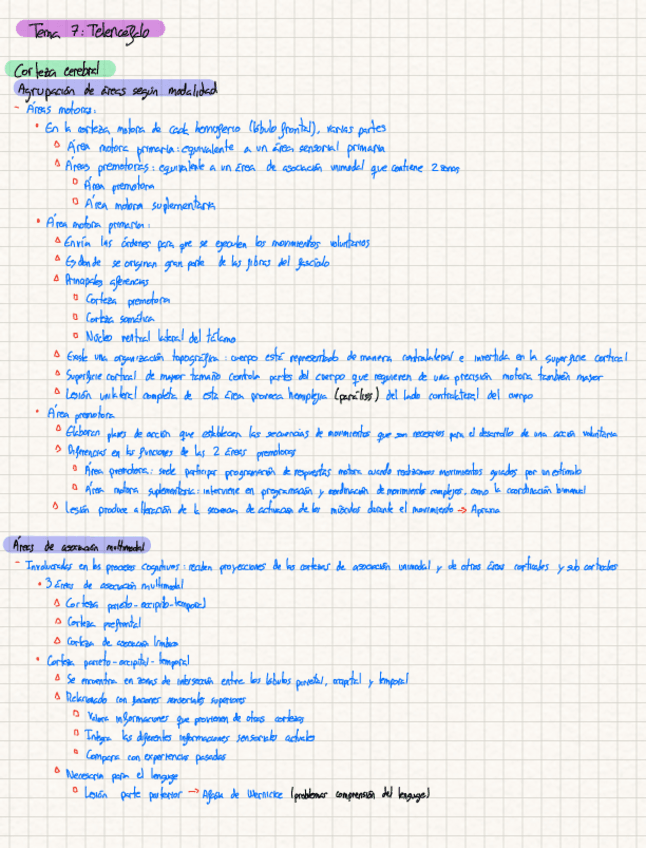 Tema 7: Telencéfalo
Corteza cerebral
Agrupación de áreas según modalidad
- Áreas motoras:
• En la corteza motora de cada hemisferio (lóbulo frontal), varias partes
Área motora primaria: equivalente a un área sensorial primaria
Áreas premotoras: equivalente a un área de asociación unimodal que contiene 2 zonas
Área premotora
Área motora suplementaria
• Área motora primaria:
Envía las órdenes para que se ejecuten los movimientos voluntarios
Es donde se originan gran parte de las fibras del fascículo
Principales aferencias
Corteza premotora
Corteza somática
Núcleo ventral lateral del tálamo
Existe una organización topográfica: cuerpo está representado de manera contralateral e invertida en la superficie cortical
Superficie cortical de mayor tamaño controla partes del cuerpo que requieren de una precisión motora también mayor
Lesión unilateral completa de esta área provoca hemiplejia (parálisis) del lado contralateral del cuerpo
• Área premotora
Elaboran planes de acción que establecen las secuencias de movimientos que son necesarios para el desarrollo de una acción voluntaria
Diferencias en las funciones de las 2 áreas premotoras
Área premotora: suele participar programación de respuestas motora cuando realizamos movimientos guiados por un estímulo
Área motora suplementaria: interviene en programación y coordinación de movimiento complejos, como la coordinación bimanual
Lesión produce alteración de la secuencia de actuación de los músculos durante el movimiento → Apraxia
Áreas de asociación multimodal
- Involucradas en los procesos cognitivos: reciben proyecciones de las cortezas de asociación unimodal y de otras áreas corticales y sub corticales
• 3 áreas de asociación multimodal
Corteza parieto-occipito-temporal
Corteza prefrontal
Corteza de asociación límbica
• Corteza parieto-occipital-temporal
Se encuentra en zonas de intersección entre los lóbulos parietal, occipital y temporal
Relacionado con funciones sensoriales superiores
Valora informaciones que provienen de otras cortezas
Integra las diferentes informaciones sensoriales actuales
Compara con experiencias pasadas
Necesaria para el lenguaje
Lesión parte posterior → Afasia de Wernicke (problemas comprensión del lenguaje)